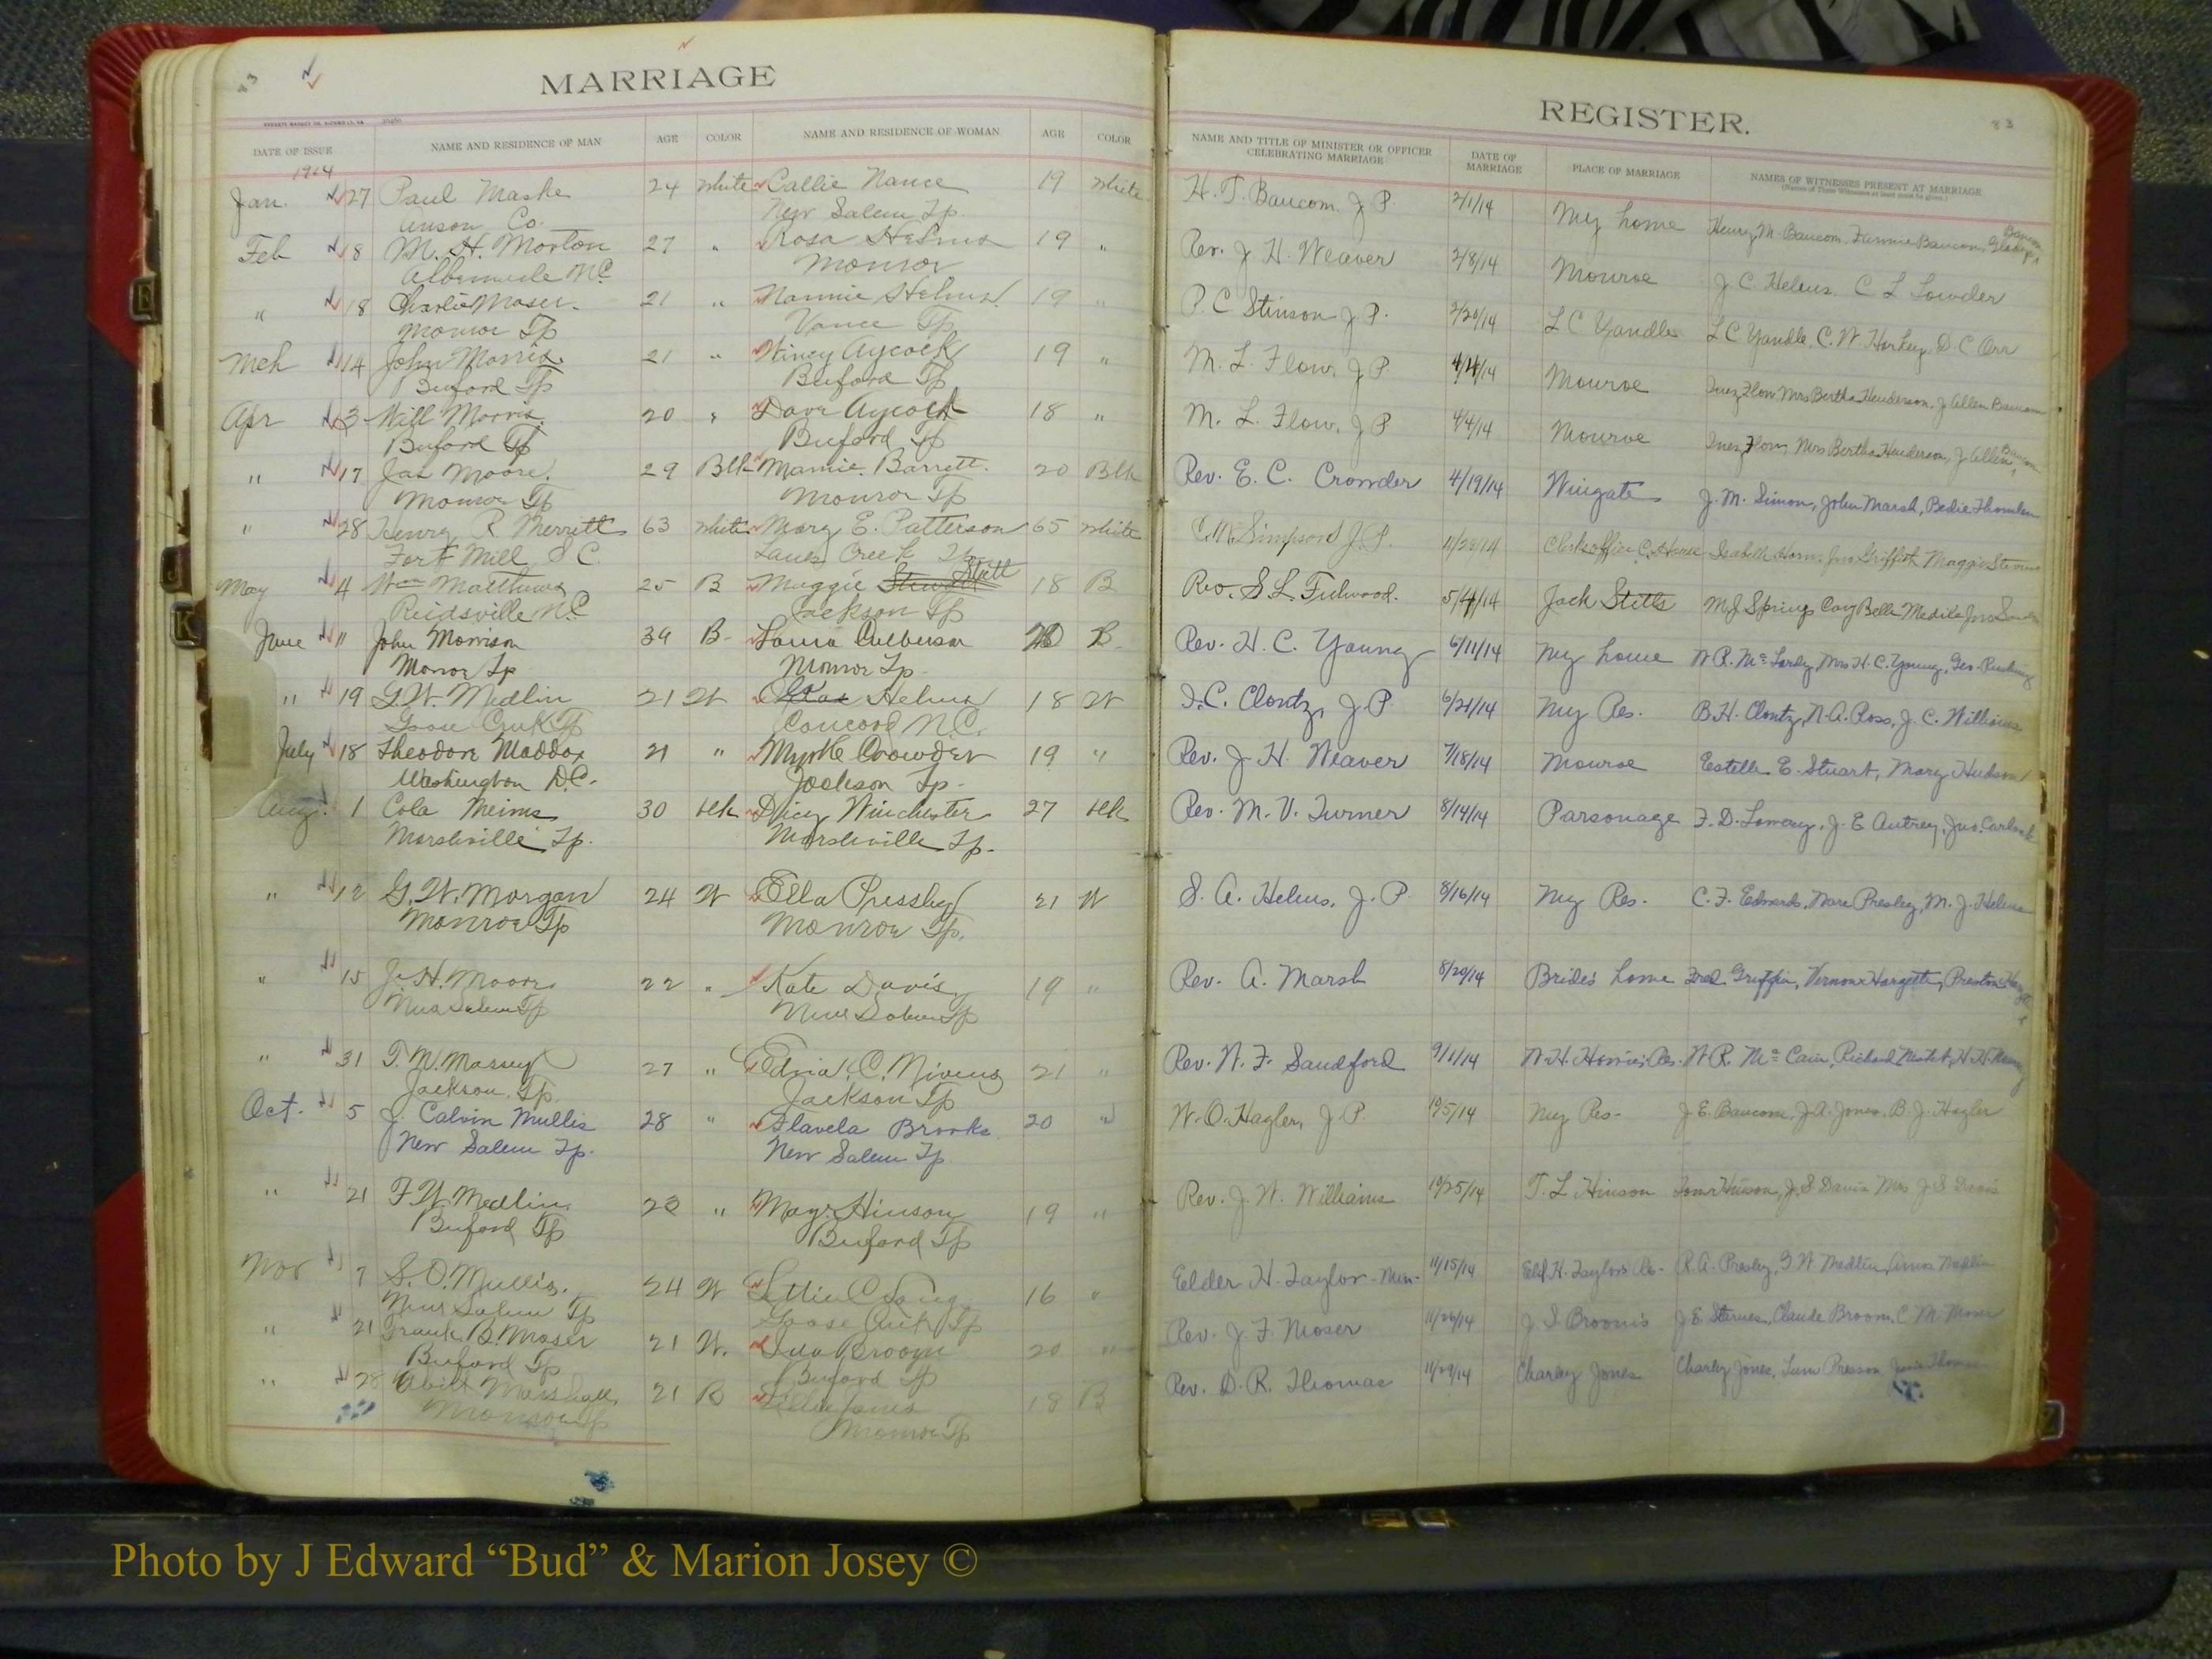 83
MARRIAGE
DATE OF ISSUE NAME AND RESIDENCE OF MAN AGE COLOR NAME AND RESIDENCE OF WOMAN AGE COLOR
1914
Jan. 27 Paul Maske 24 white Callie Nance 19 white
Anson Co. New Salem Tp
Feb 18 M. H. Morton 27 " Rosa Helms 19 "
Albemarle NC Monroe
" 18 Charlie Moser. 21 " Nannie Helms 19 "
Monroe Tp Vance Tp
Mch 14 John Morris. 21 " Winey Aycock 19 "
Buford Tp Buford Tp
Apr 3 Will Morris. 20 " Dove Aycock 18 "
Buford Tp Buford Tp
" 17 Jas Moore. 29 Blk Mamie Barrett. 20 Blk
Monroe Tp Monroe Tp
" 28 Henry R Merritt 63 white Mary E. Patterson 65 white
Fort Mill S C. Lanes Creek Tp
May 4 Wm Matthews 25 B Maggie Stitt 18 B
Reidsville N.C. Jackson Tp
June 11 John Morrison 39 B- Laura Culberson B
Monroe Tp Monroe Tp-
" 19 G.W. Medlin 21 W Helms 18 W
Goose Creek Tp Concord N.C.
July 18 Theodore Maddox 21 " Myrtle Crowder 19 "
Washington D.C- Jackson Tp-
Aug. 1 Cola Meims 30 blk Dicy Winchester 27 blk
Marshville Tp. Marshville Tp-
" 12 G.W. Morgan 24 W Ella Pressley 21 W
Monroe Tp Monroe Tp.
" 15 J.H. Moore 22 " Kate Davis 19 "
New Salem Tp New Salem Tp
" 31 T. W. Massey 27 " Edna C. Nivens 21 "
Jackson Tp. Jackson Tp
Oct. 5 J. Calvin Mullis 28 " Flavela Brooks 20 "
New Salem Tp. New Salem Tp
" 21 F W. Medlin. " May Hinson 19 "
Buford Tp Buford Tp
Nov 7 S. O. Mullis. 24 W Lottie C Long 16 "
New Salem Tp Goose Creek Tp
" 21 Frank B. Moser 21 W. Broom 20 "
Buford Tp Buford Tp
" 28 Marshall 21 B Jones 18 B
Monroe Tp Monroe Tp
REGISTER.
83
NAME AND TITLE OF MINISTER OR OFFICER CELEBRATING MARRIAGE DATE OF MARRIAGE PLACE OF MARRIAGE NAMES OF WITNESSES PRESENT AT MARRIAGE
(Names of Three Witnesses at least must be given.)
H. T. Baucom. J P. 2/1/14 My home Henry M. Baucom Fannie Baucom, Gladys Baucom
Rev. J H. Weaver 2/8/14 Monroe J. C. Helms. C L Lowder
P. C Stinson J P. 2/20/14 L C Yandle L C Yandle, C. W. Harkey, D. C Orr
M. L. Flow, J P. 4/4/14 Monroe Inez Flow Mrs Bertha Henderson, J Allen Baucom
M. L. Flow, J P 4/4/14 Monroe Inez Flow, Mrs Bertha Henderson, J Allen Baucom
Rev. E. C. Crowder 4/19/14 Wingate J. M. Simon, John Marsh, Bedie
C. M. Simpson J. P. Clerks office C. House Isabelle Horn, Jno Griffith Maggie Stevens
Rev. S L. Fulwood. 5/4/14 Jack Stitts M J Springs Coy Belle
Rev. H. C. Young 6/11/14 My home Mrs H. C. Young, Geo.
I. C. Clontz, J P. 6/21/14 My Res. B. H. Clontz, N. A. Ross, J. C. Williams
Rev. J. H. Weaver 7/18/14 Monroe Estelle E. Stuart, Mary Hudson
Rev. M. V. Turner 8/14/14 Parsonage F. D. Lowery, J. E Autrey, Jno.
S. A. Helms, J. P. 8/16/14 My Res- C. F. Edwards, Presley, M. J. Helms
Rev. A. Marsh 8/20/14 Brides home Fred Griffin, Vernon Hargett, Preston
Rev. N. F. Sandford 9/1/14 W. H. Res. W R. McCain, Richard
W. O. Hagler, J. P. 10/5/14 My Res- J E. Baucom, J A. Jones, B. J. Hagler
Rev. J. W. Williams 10/25/14 T. L Hinson Hinson, J. S Davis Mrs J S Davis
Elder H. Taylor - Min- 11/15/14 Eld. H. Taylors Res- R. A. Presley, Medlin, Amos Medlin
Rev. J. F. Moser 11/26/14 J. S Broom's J E. Starnes, Claude Broom, C M. Moser
Rev. D. R. Thomas 11/29/14 Charley Jones Charley Jones, Presson
Photo by J Edward “Bud” & Marion Josey ©